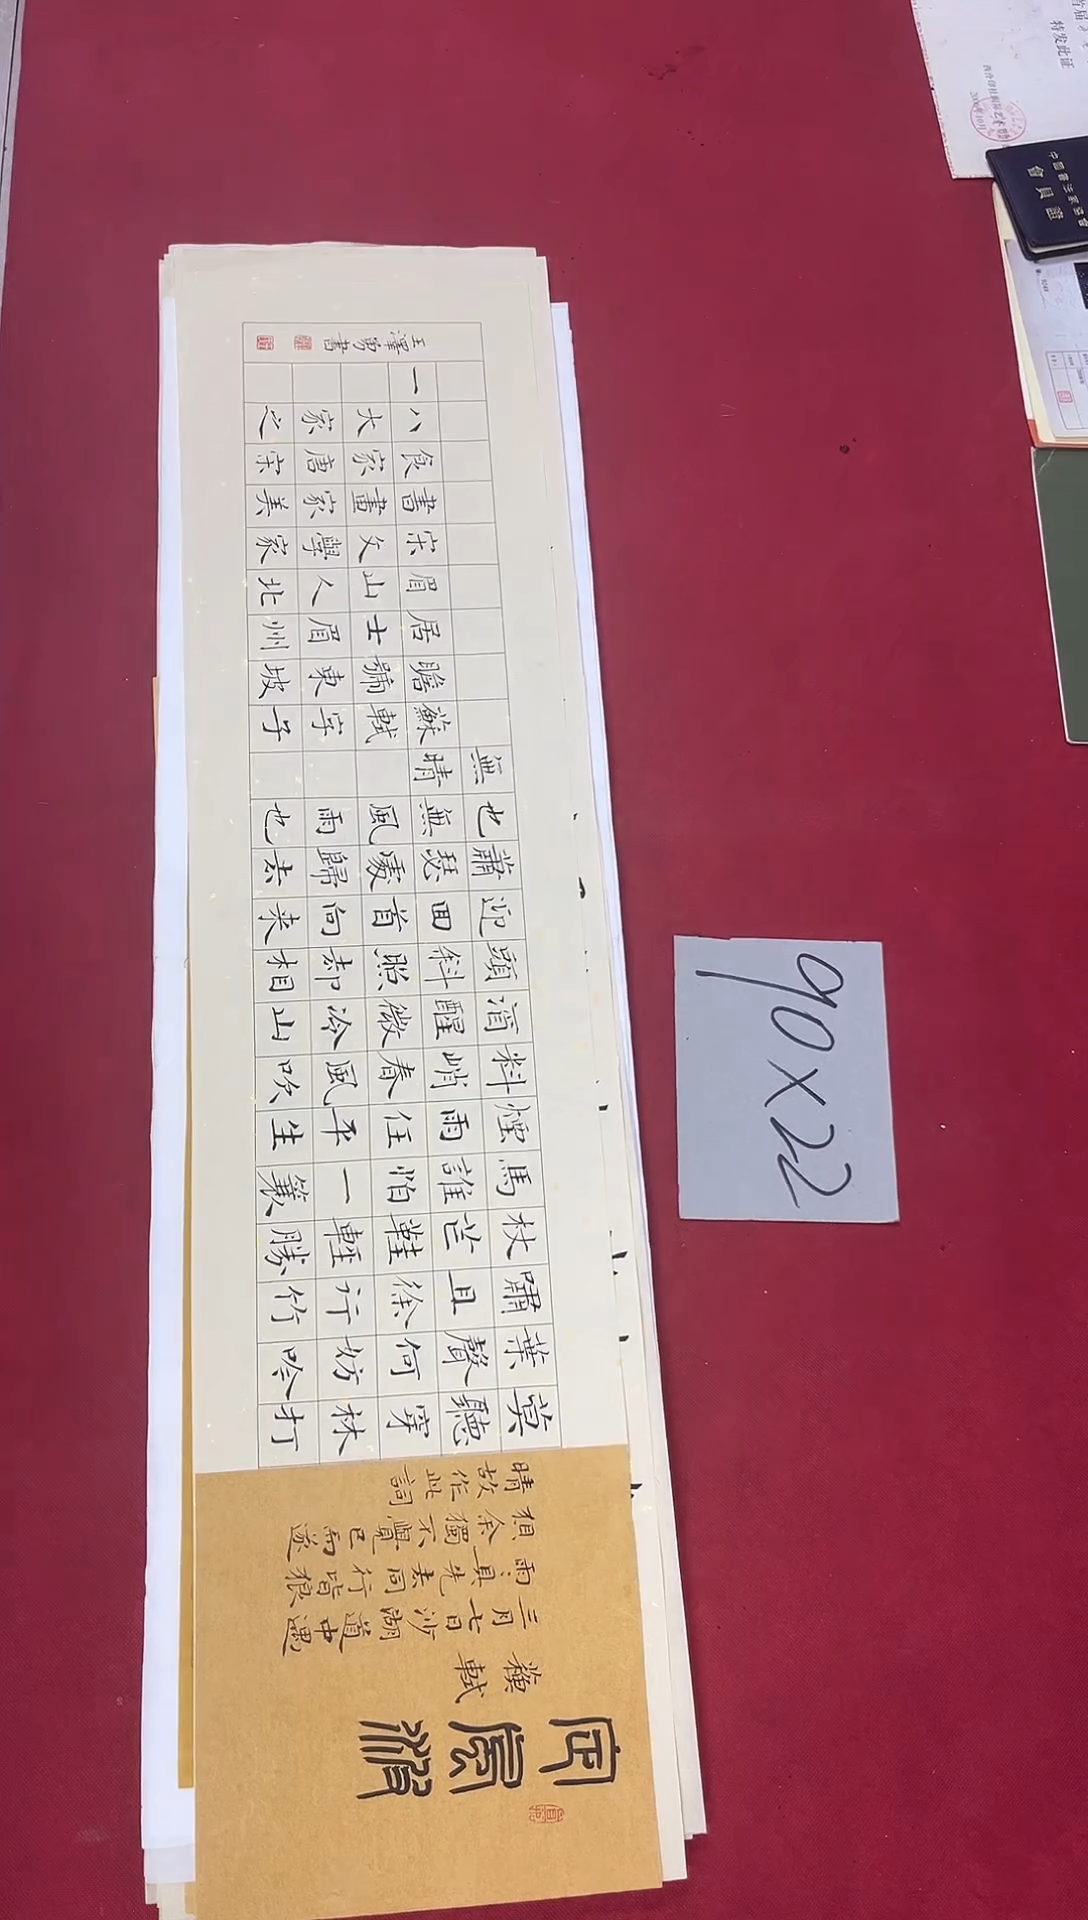 定風波
蘇軾
三月七日沙湖道中遇
雨:具先去同行皆狼
狽余獨不覺已而遂
晴故作此詞
莫聽穿林打
葉聲何妨吟
嘯且徐行竹
杖芒鞋輕勝
馬誰怕一蓑
煙雨任平生
料峭春風吹
酒醒微冷山
頭斜照却相
迎回首向来
蕭瑟處歸去
也無風雨也
無晴
蘇軾字子
瞻號東坡
居士眉州
眉山人北
宋文學家
書畫家美
食家唐宋
八大家之
一
王澤勇書
90×22
特发此证
中國書法家協會
會員證